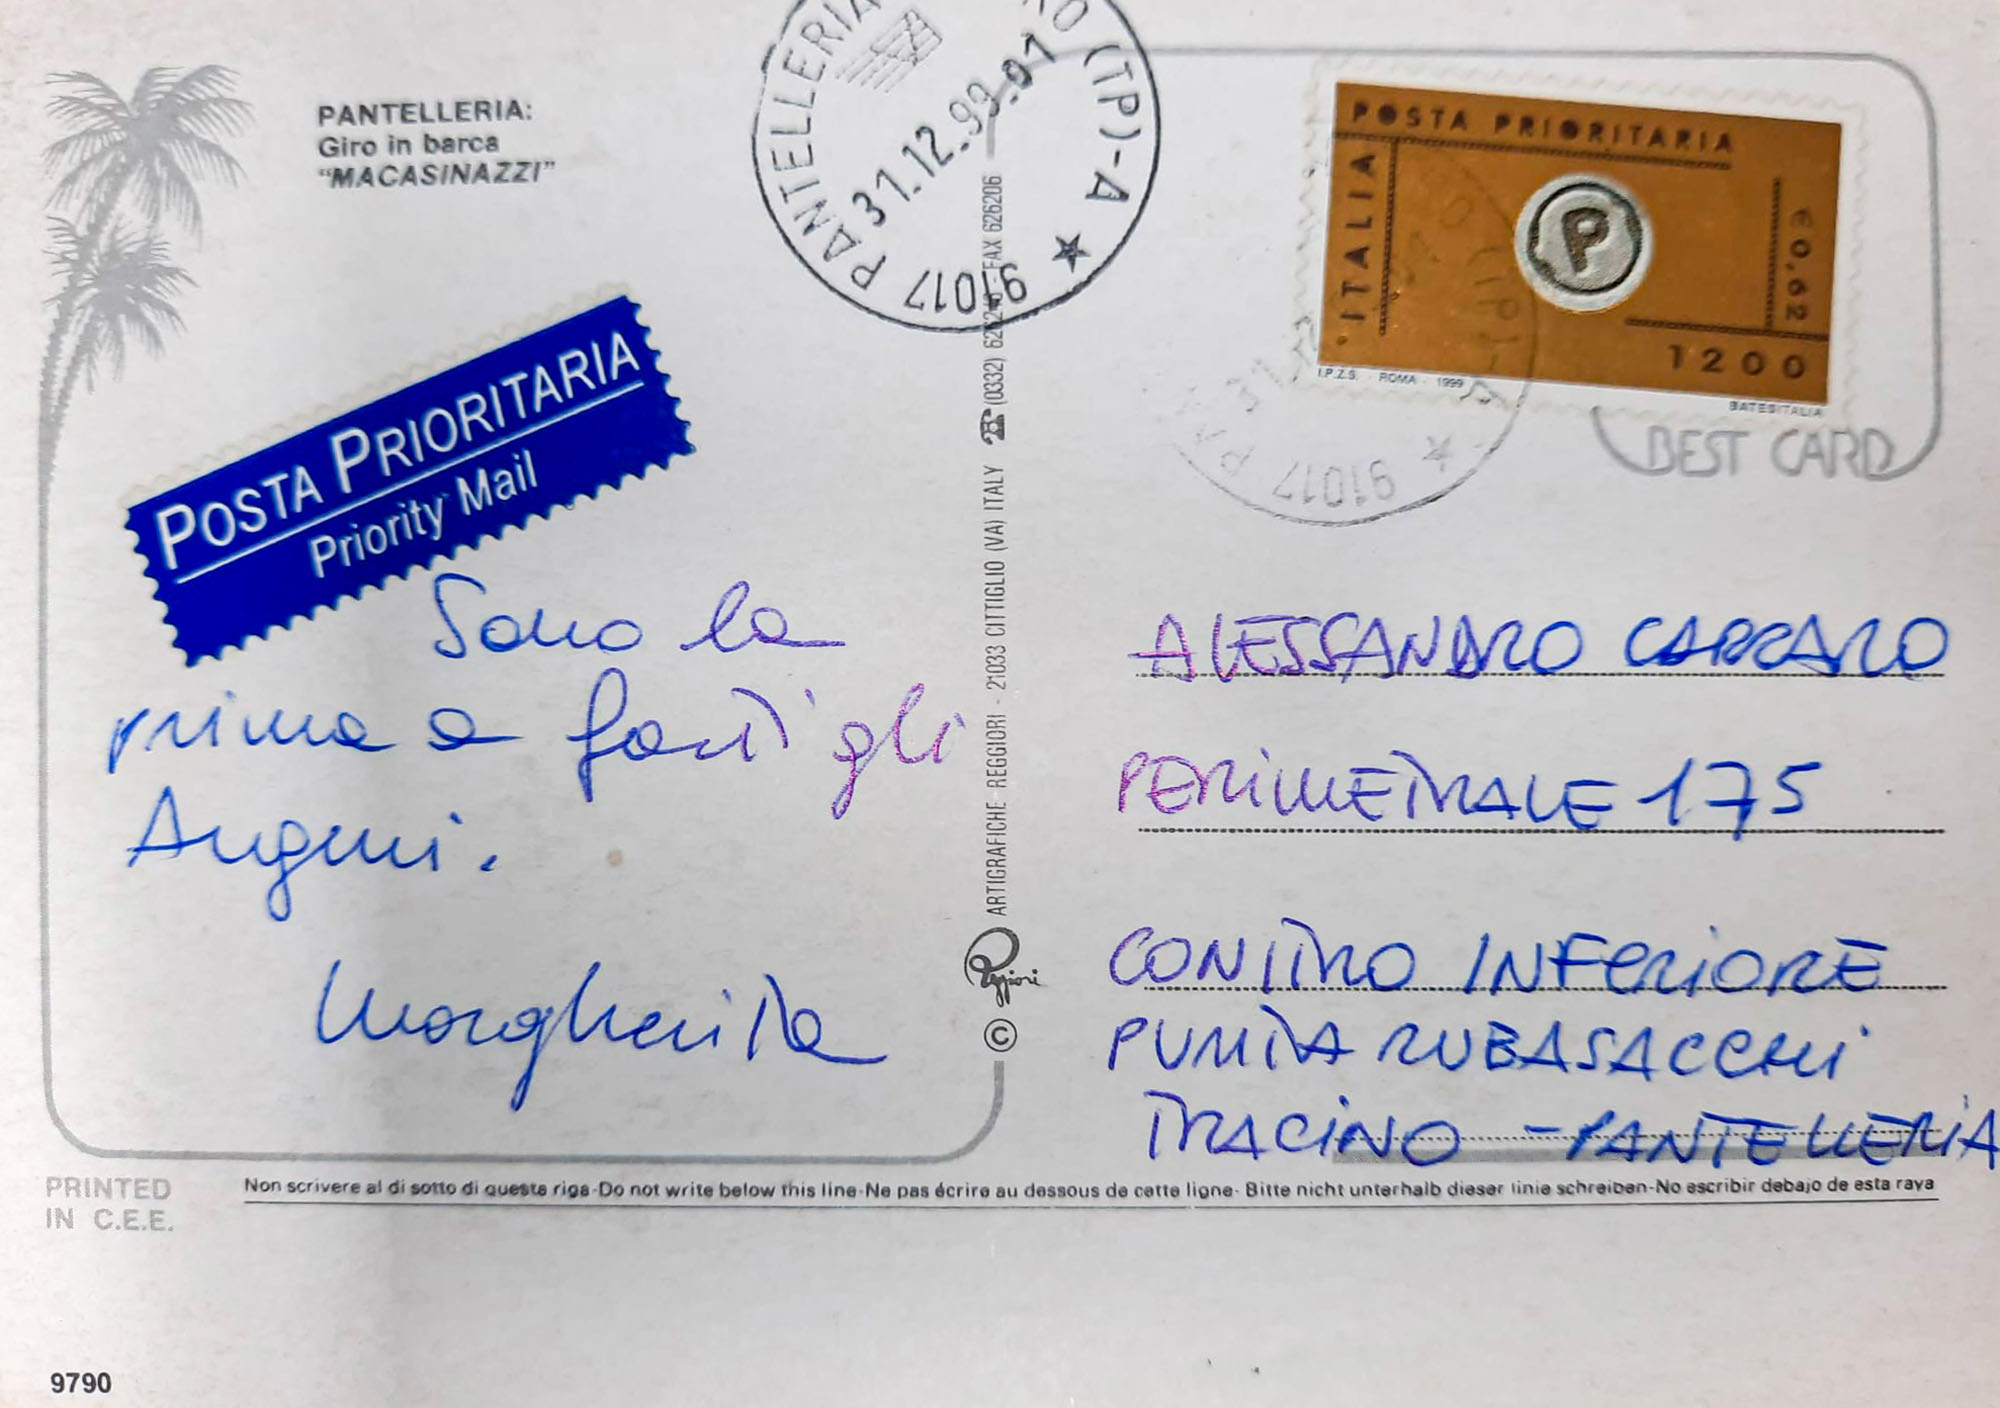 PANTELLERIA:
Giro in barca
"MACASINAZZI"
PANTELLERIA
RO (TP)-A ★
91017 PANTELLERIA
31.12.99-01
POSTA PRIORITARIA
ITALIA
P
€0,62
1200
I.P.Z.S. - ROMA - 1999
BATESITALIA
BEST CARD
91017 PA
POSTA PRIORITARIA
Priority Mail
Sono la
prima a farti gli
Auguri.
Margherita
ARTIGRAFICHE REGGIORI - 21033 CITTIGLIO (VA) ITALY ☎ (0332) FAX 626206
Reggiori
©
ALESSANDRO CARRARO
PERIMETRALE 175
CONITRO INFERIORE
PUNTA RUBASACCHI
TRACINO - PANTELLERIA
PRINTED
IN C.E.E.
Non scrivere al di sotto di questa riga-Do not write below this line-Ne pas écrire au dessous de cette ligne- Bitte nicht unterhalb dieser linie schreiben-No escribir debajo de esta raya
9790